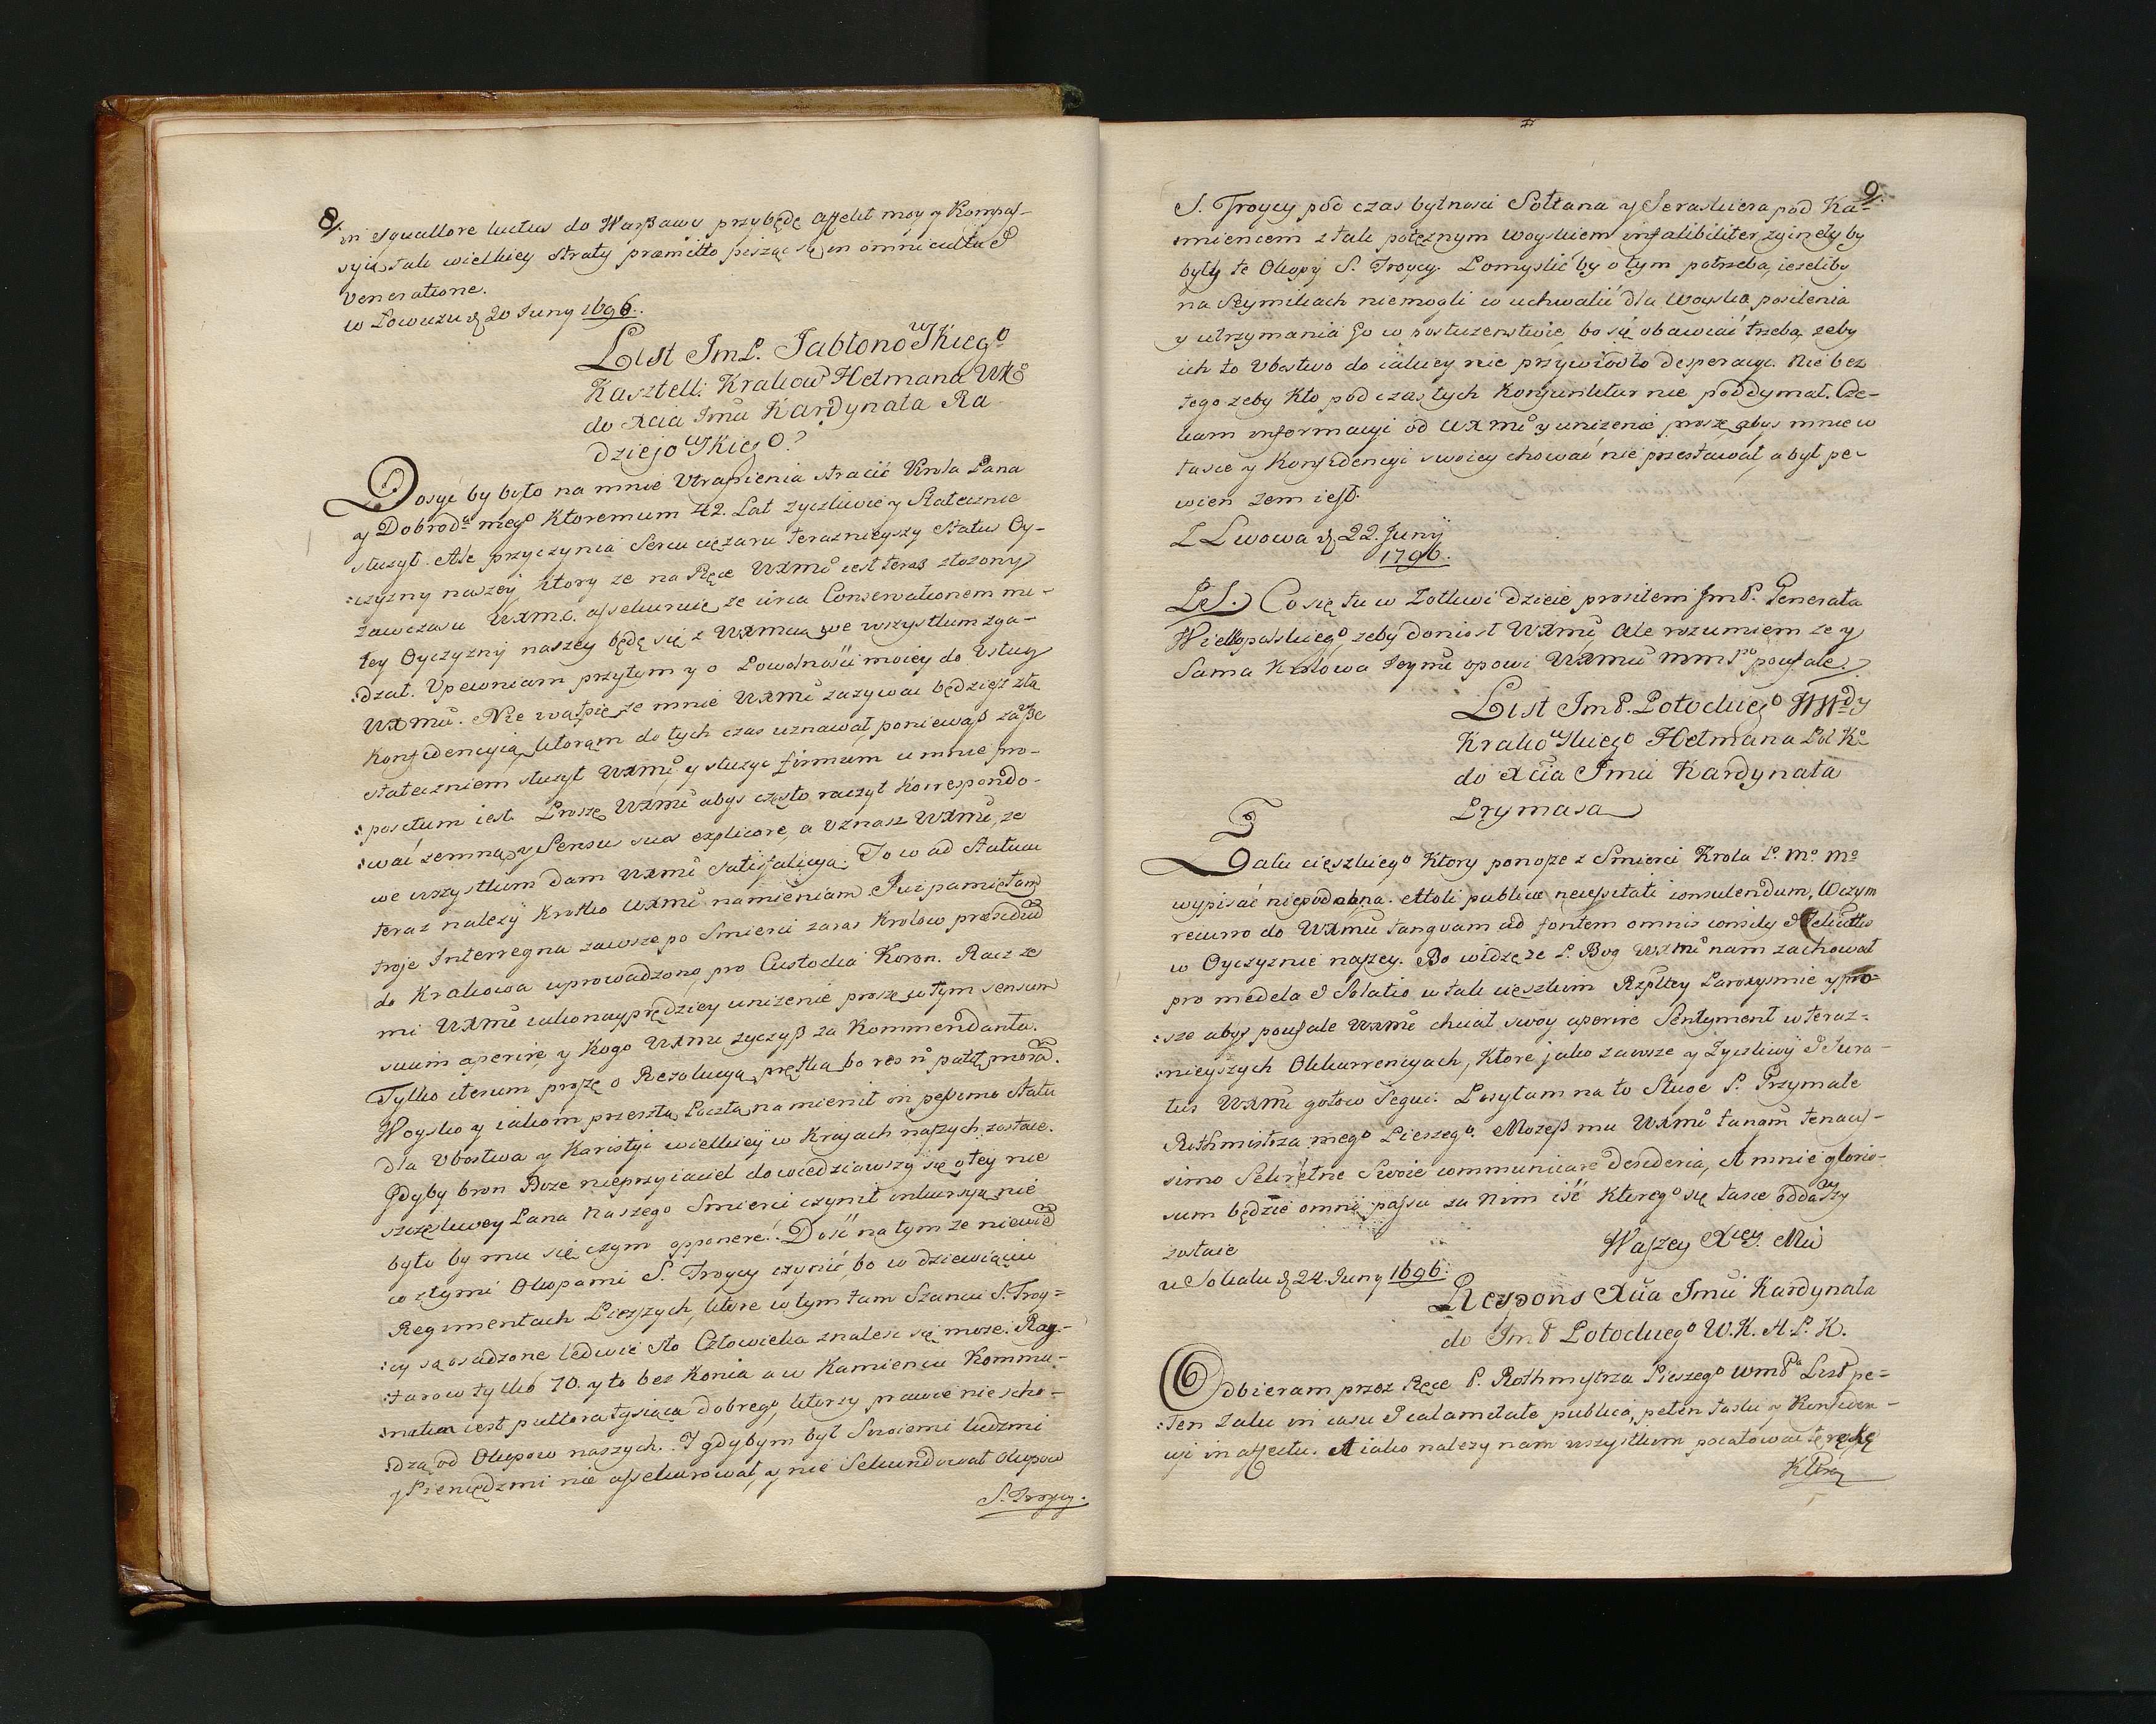 8.
in squallore luctus do Warszawy przybędę affekt moy y Kompas-
syią tak wielkiey straty præmitto pisząc się in omni cultu &
veneratione.
w Łowiczu d. 20 Juny 1696.
List ImP. JabłonowSkiego
Kasztell: Krakow Hetmana WKo
do Xcia Imci Kardynała Ra
dziejowSkiego
Dosyć by było na mnie Utrapienia stracić Krola Pana
y Dobroda mego Ktoremum 42. Lat zyczliwie y Statecznie
słuzył. Ale przyczynia Sercu cięzaru teraznieyszy Status Oy-
:czyzny naszey ktory ze na Ręce WXMci iest teraz złozony
zawczasu WXMci assekuruię ze circa Conservationem mi-
łey Oyczyzny naszey będę się z WXMcią we wszystkim zga-
:dzał. Upewniam przytem y o Powolnosci moiey do Usług
WXMci. Nie wątpię ze mnie WXMci zazywac będziesz z tą
Konfidencyią ktorąm do tych czas uznawał, poniewasz zawsze
stateczniem słuzył WXMci y słuzyc firmum u mnie pro-
:positum iest. Proszę WXMci abys często raczył Korrespondo-
:wać zemną, y Sensus suos explicare, a uznasz WXMć, ze
we wszystkim dam WXMci satisfakcyą. To w ad statum
teraz nalezy krotko WXMci namieniam. Jusz pamiętam
troje Interregna zawsze po Smierci zaraz Krolow præsidium
do Krakowa uprowadzono, pro Custodia Koron. Racz ze
mi WXMć iako nayprędziey unizenie proszę w tym sensum
suum aperire, y kogo WXMć zyczysz za Kommendanta.
Tylko iterum proszę o Rezolucyą prętką bo res no patit moram.
Woysko y iakom przeszłą Pocztą namienił in pessimo statu
dla Ubostwa y Karistyi wielkiey w Krajach naszych zostaie.
Gdyby bron Boze nieprzyiaciel dowiedziawszy się o tey nie
szczęsliwey Pana Naszego Smierci czynił inkursyą nie
było by mu się czym opponere. Dosć na tym ze niewiem
co z tymi Okopami S. Troycy czynić, bo w dziewiąciu
Regimentach Pieszych, ktore w tym tam Szancu S. Troy=
:cy są osadzone ledwie sto Człowieka znalesc się moze. Ray-
:tarow tylko 70. y to bez Konia a w Kamiencu Kommu-
:nika iest pułtora tysiąca dobrego, ktorzy prawie nie scho-
:dzą od Okopow naszych. I gdybym był Swoiemi ludzmi
y Pieniędzmi nie assekurował, y nie Sekundował Okopow
S. Troycy.
9.
S. Troycy pod czas bytnosci Sołtana y Seraskiera pod Ka-
:miencem z tak potęznym woyskiem infalibiliter zginęły by
były te Okopy S. Troycy. Pomyslić by o tym potrzeba, iezeliby
na Seymikach niemogli co uchwalić dla woyska posilenia
y utrzymania Go w posłuzenstwie, bo się obawiać trzeba, zeby
ich to Ubostwo do iakiey nie przywiodło desperacyi. Nie bez
tego zeby kto pod czas tych Konjunktur nie poddymał. Cze-
kam informacyi od WXMci y unizenie proszę, abys mnie w
łasce y Konfidencyi swoiey chować nie przestawał, a był pe-
wien zem iest.
Z Lwowa d. 22. Juny
1796.
P.S. Co się tu w Zołkwi dzieie prosiłem JmP. Generała
Wielkopolskiego zeby doniosł WXMci Ale rozumiem ze y
Sama Krolowa Jeymć opowi WXMci MMPo poufale
List ImP. Potockiego WWdy
KrakowSkiego Hetmana Pol Ko
do Xcia Imci Kardynała
Prymasa
Zalu cięszkiego Ktory ponoszę z Smierci Krola P. Mo Mo
wypisać niepodobna. Atoli publicæ necessitati consulendum, Wczym
recurro do WXMci tanquam ad fontem omnis consily & felicitatis
w Oyczyznie naszey. Bo widzę ze P. Bog WXMci nam zachował
pro medela & Solatio w tak cięszkim Rzpltey Paroxysmie y pro=
:szę abys poufale WXMć chciał swoy aperire Sentyment w teraz=
:nieyszych Okkurrencyach, Ktore jako zawsze y Zyczliwy & Iura-
tus WXMci gotow Sequi. Posyłam na to Sługę P. Przymałe
Rothmistrza mego Pieszego. Mozesz mu WXMć tanqm tenacis-
simo Sekretne Swoie communicare desideria, A mnie glorio-
sum będzie omni passu za nim iść Ktorego się łasce oddawszy
zostaię Waszey Xcey. Mci
w Sokalu d. 24. Juny 1696.
Respons Xcia Imci Kardynała
do ImP Potockiego W.K.H.P.K.
Odbieram przez Ręce P. Rothmystrza Pieszego WMPa List pe=
:łen zalu in casu & calamitate publica, pełen łaski y Konfiden-
cyi in affectu. A iako nalezy nam wszystkim pocałować tę rękę
Ktora